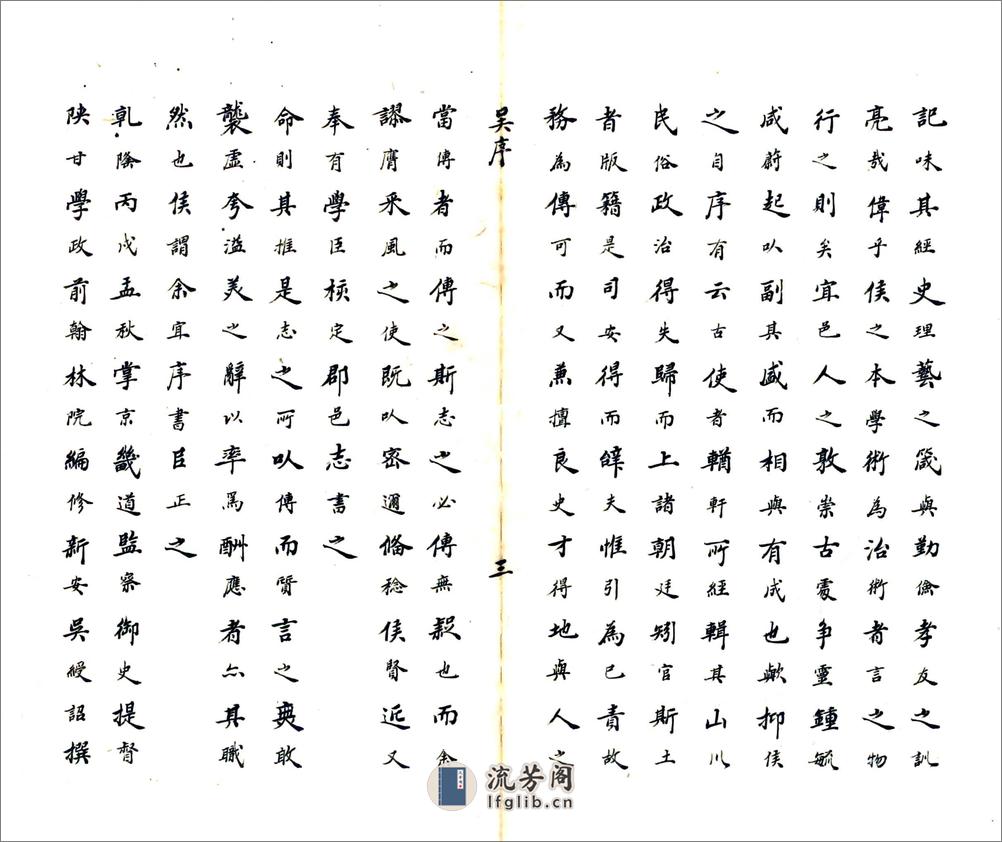 記味其經史理藝之箴與勤儉孝友之訓
亮哉偉乎侯之本學術為治術者言之物
行之則矣宜邑人之敦崇古處爭靈鍾毓
咸蔚起以副其盛而相與有成也歟抑侯
之自序有云古使者輶軒所經輯其山川
民俗政治得失歸而上諸朝廷矧官斯土
者版籍是司安得而辭夫惟引為己責故
務為傳可而又兼擅良史才得地與人之
吳序
三
當傳者而傳之斯志之必傳無疑也而余
謬膺采風之使既以密邇俻稔侯賢近又
奉有學臣核定郡邑志書之
命則其推是志之所以傳而贅言之奚敢
襲虛夸溢美之辭以率為酬應者亦其職
然也侯謂余宜序書臣正之
乾隆丙戌孟秋掌京畿道監察御史提督
陝甘學政前翰林院編修新安吳綬詔撰
流芳阁
lfglib.cn